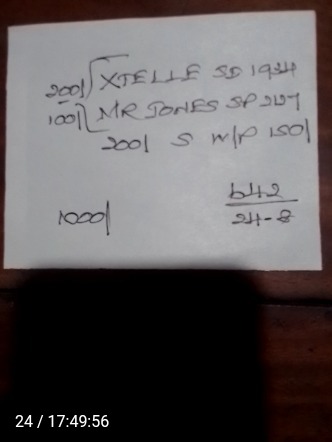 200/ XTELLE SD 1934
100/ MR JONES SP 217
200/ S W/P 150/
1000/ 642
24-8
24 / 17:49:56